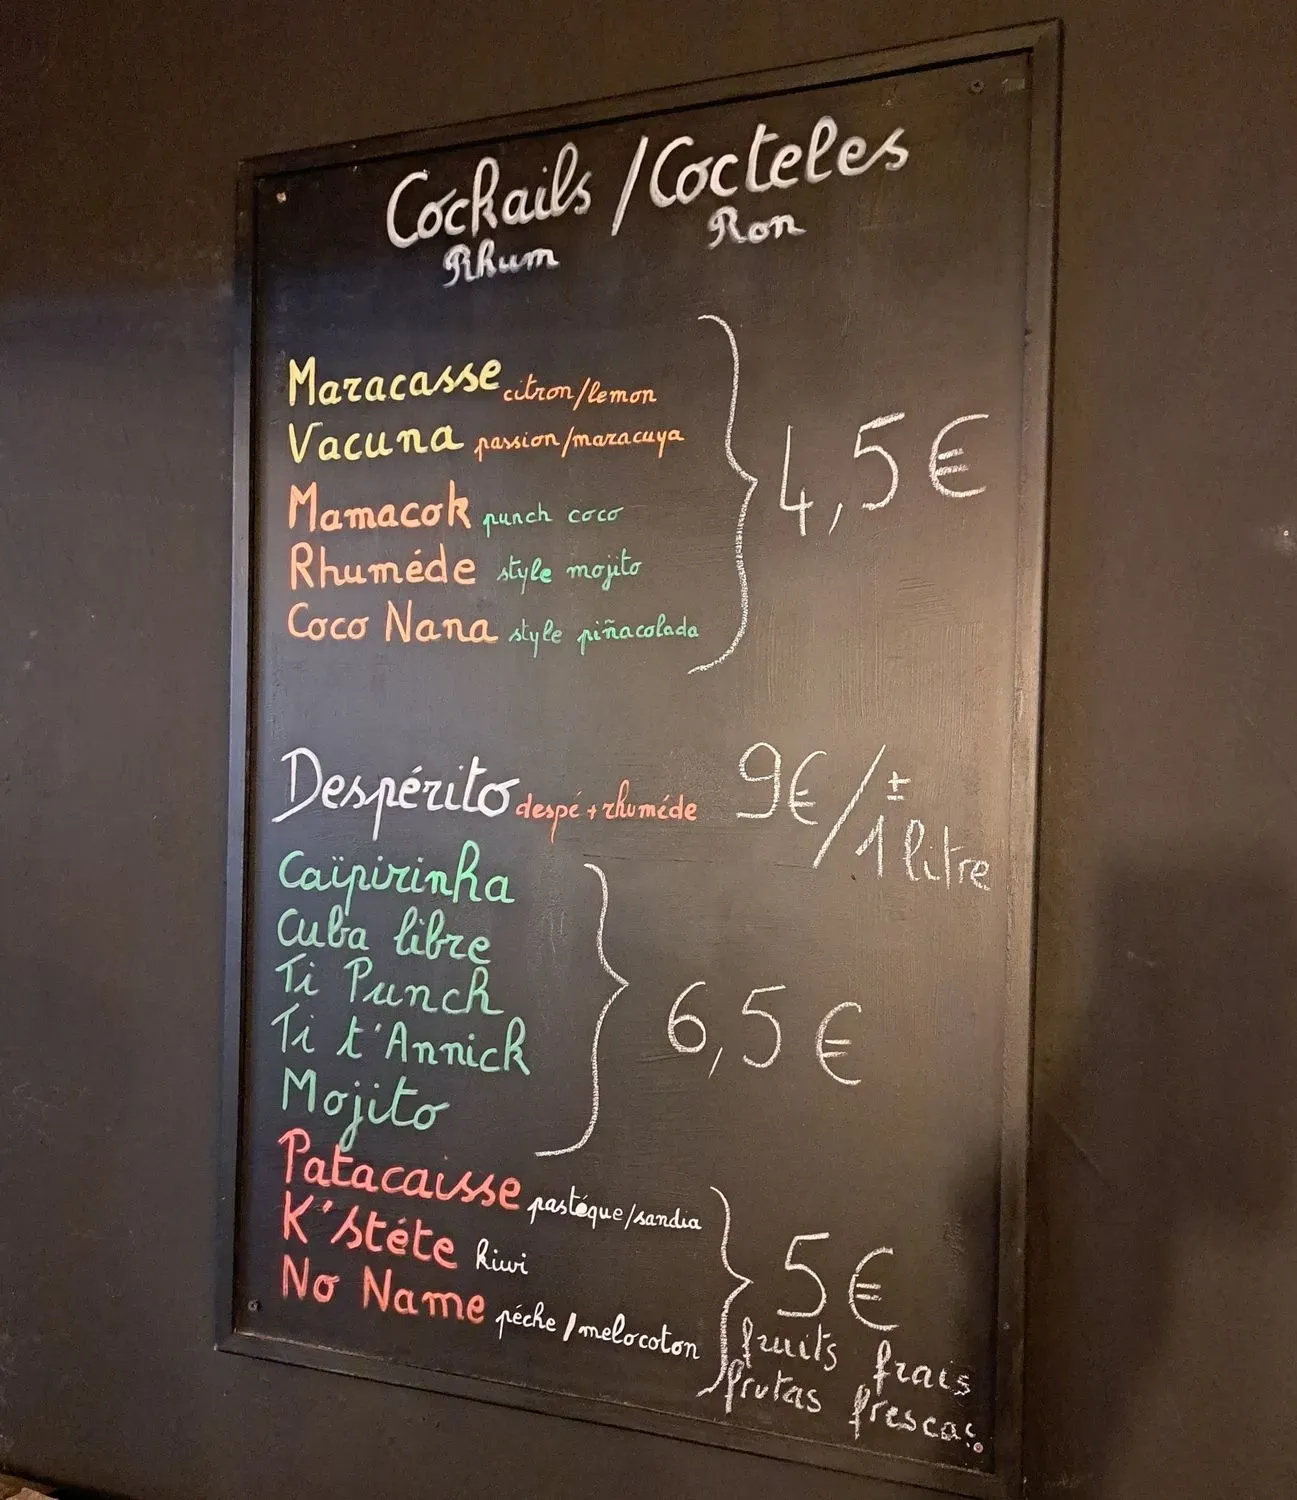 Cocktails / Cocteles
Rhum Ron
Maracasse citron/lemon
Vacuna passion/maracuya
Mamacok punch coco
Rhuméde style mojito
Coco Nana style piñacolada
4,5€
Despérito despé + rhuméde 9€/± 1 litre
Caïpirinha
Cuba libre
Ti Punch
Ti t'Annick
Mojito
6,5€
Patacaisse pastéque/sandia
K'stéte kiwi
No Name péche/melocoton
5€
fruits frais
frutas frescas